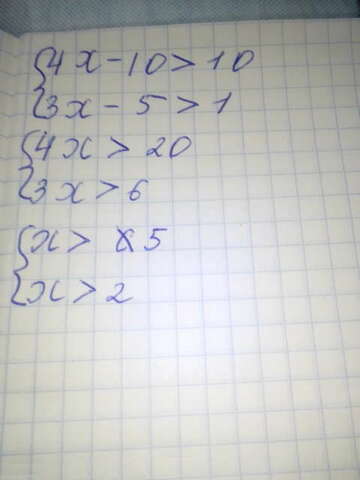 {4x - 10 > 10
{3x - 5 > 1
{4x > 20
{3x > 6
{x > 5
{x > 2